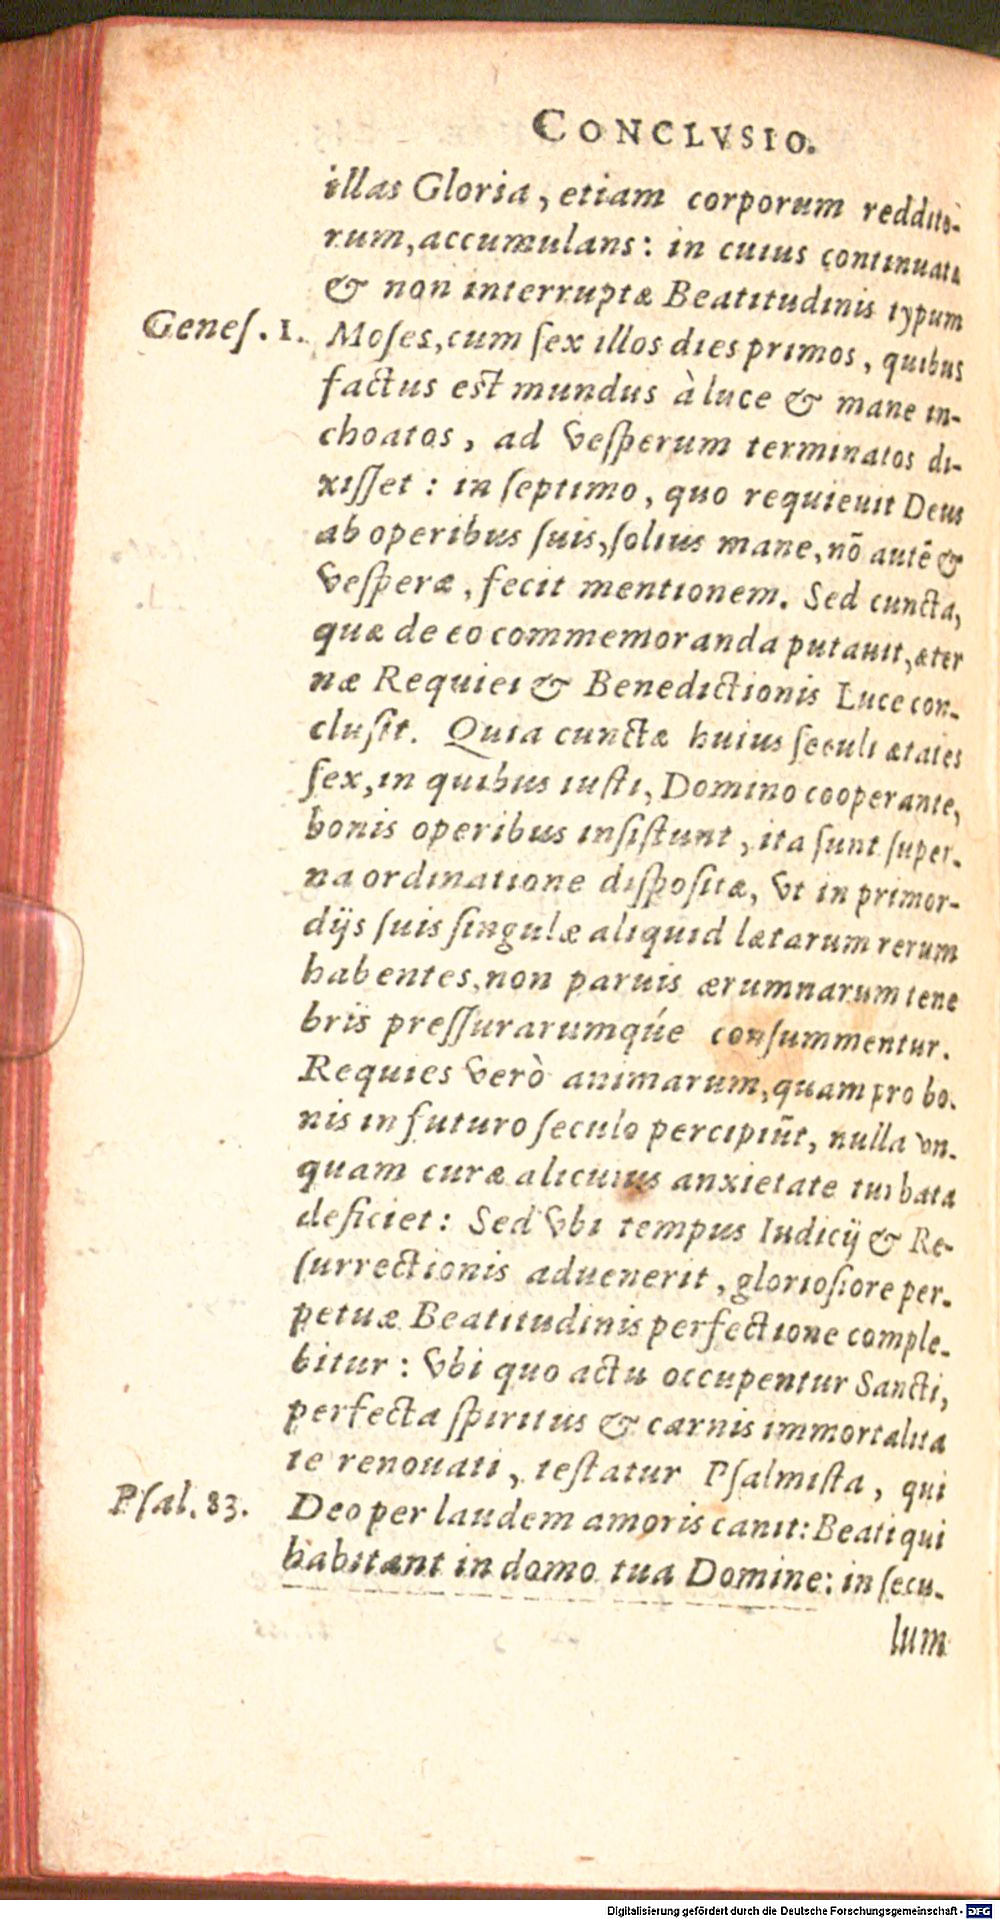 CONCLVSIO.
illas Gloria, etiam corporum reddito-
rum, accumulans: in cuius continuatæ
& non interruptæ Beatitudinis typum
Genes. 1. Moses, cum sex illos dies primos, quibus
factus est mundus à luce & mane in-
choatos, ad vesperum terminatos di-
xisset: in septimo, quo requieuit Deus
ab operibus suis, solius mane, nō autē &
vesperæ, fecit mentionem. Sed cuncta,
quæ de eo commemoranda putauit, æter
næ Requiei & Benedictionis Luce con-
clusit. Quia cunctæ huius seculi ætates
sex, in quibus iusti, Domino cooperante,
bonis operibus insistunt, ita sunt super-
na ordinatione dispositæ, vt in primor-
dijs suis singulæ aliquid lætarum rerum
habentes, non paruis ærumnarum tene
bris pressurarumq́ue consummentur.
Requies verò animarum, quam pro bo-
nis in futuro seculo percipiūt, nulla vn-
quam curæ alicuius anxietate turbata
deficiet: Sed vbi tempus Iudicij & Re-
surrectionis aduenerit, gloriosiore per-
petuæ Beatitudinis perfectione comple-
bitur: vbi quo actu occupentur Sancti,
perfecta spiritus & carnis immortalita
te renouati, testatur Psalmista, qui
Psal. 83. Deo per laudem amoris canit: Beati qui
habitant in domo tua Domine: in secu-
lum
Digitalisierung gefördert durch die Deutsche Forschungsgemeinschaft - DFG